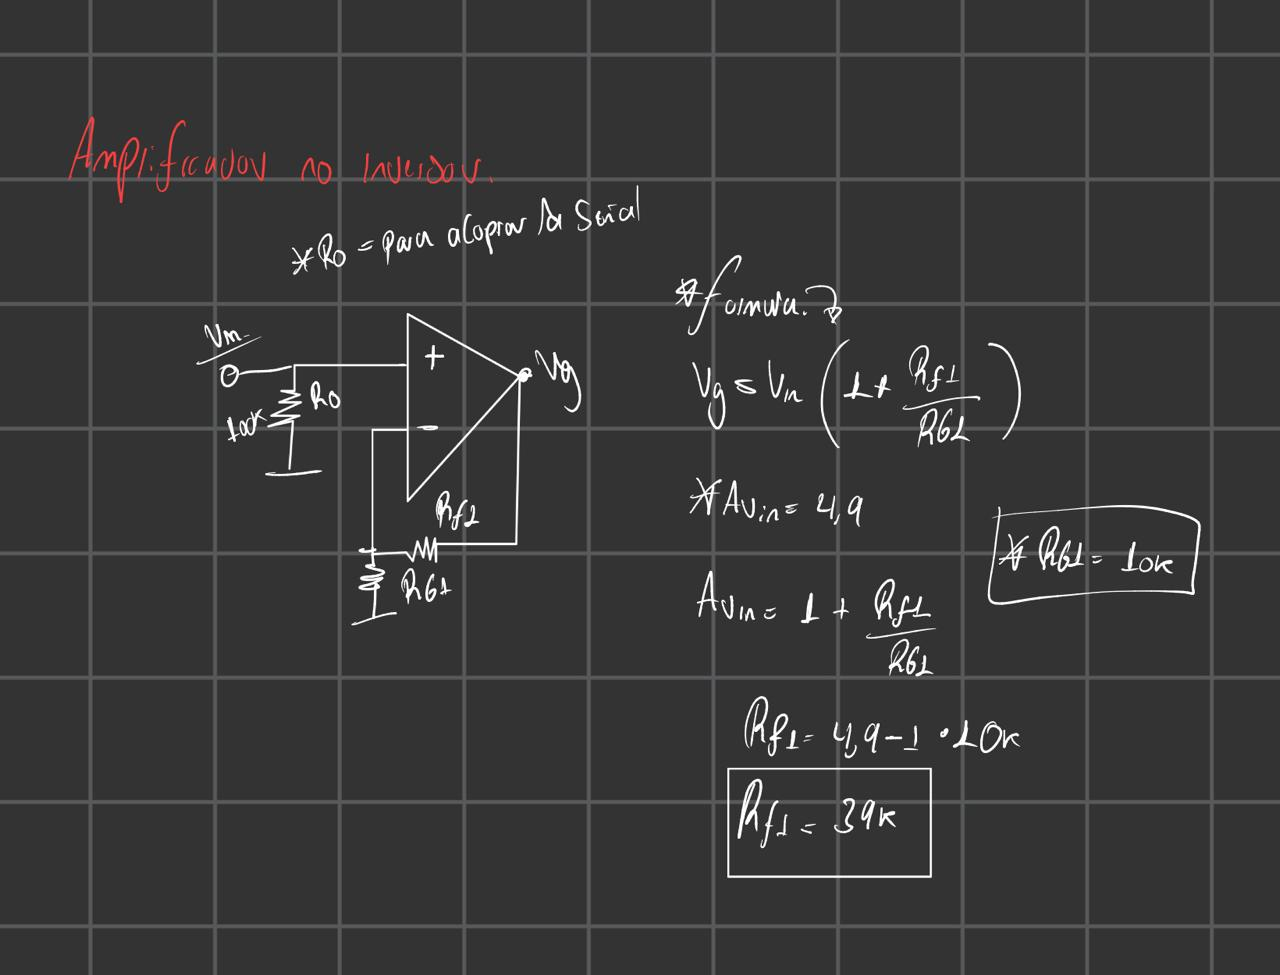 Amplificador no Inversor.
*R0 = para acoplar la señal
Vin
R0
100K
+
-
Vg
Rf1
RG1
*formula.
Vg = Vin ( 1 + Rf1 / RG1 )
*Avin = 4,9
* RG1 = 10K
Avin = 1 + Rf1 / RG1
Rf1 = 4,9 - 1 · 10K
Rf1 = 39K